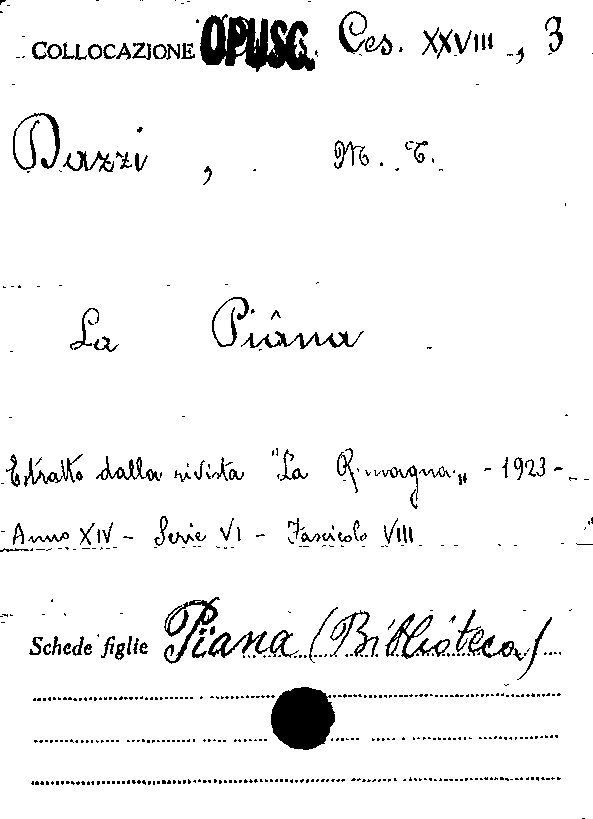 COLLOCAZIONE OPUSC. Ces. XXVIII, 3
Dazzi, M. T.
La Piâna
Estratto dalla rivista "La Romagna„ - 1923 -
Anno XIV - Serie VI - Fascicolo VIII
Schede figlie Piana (Biblioteca)